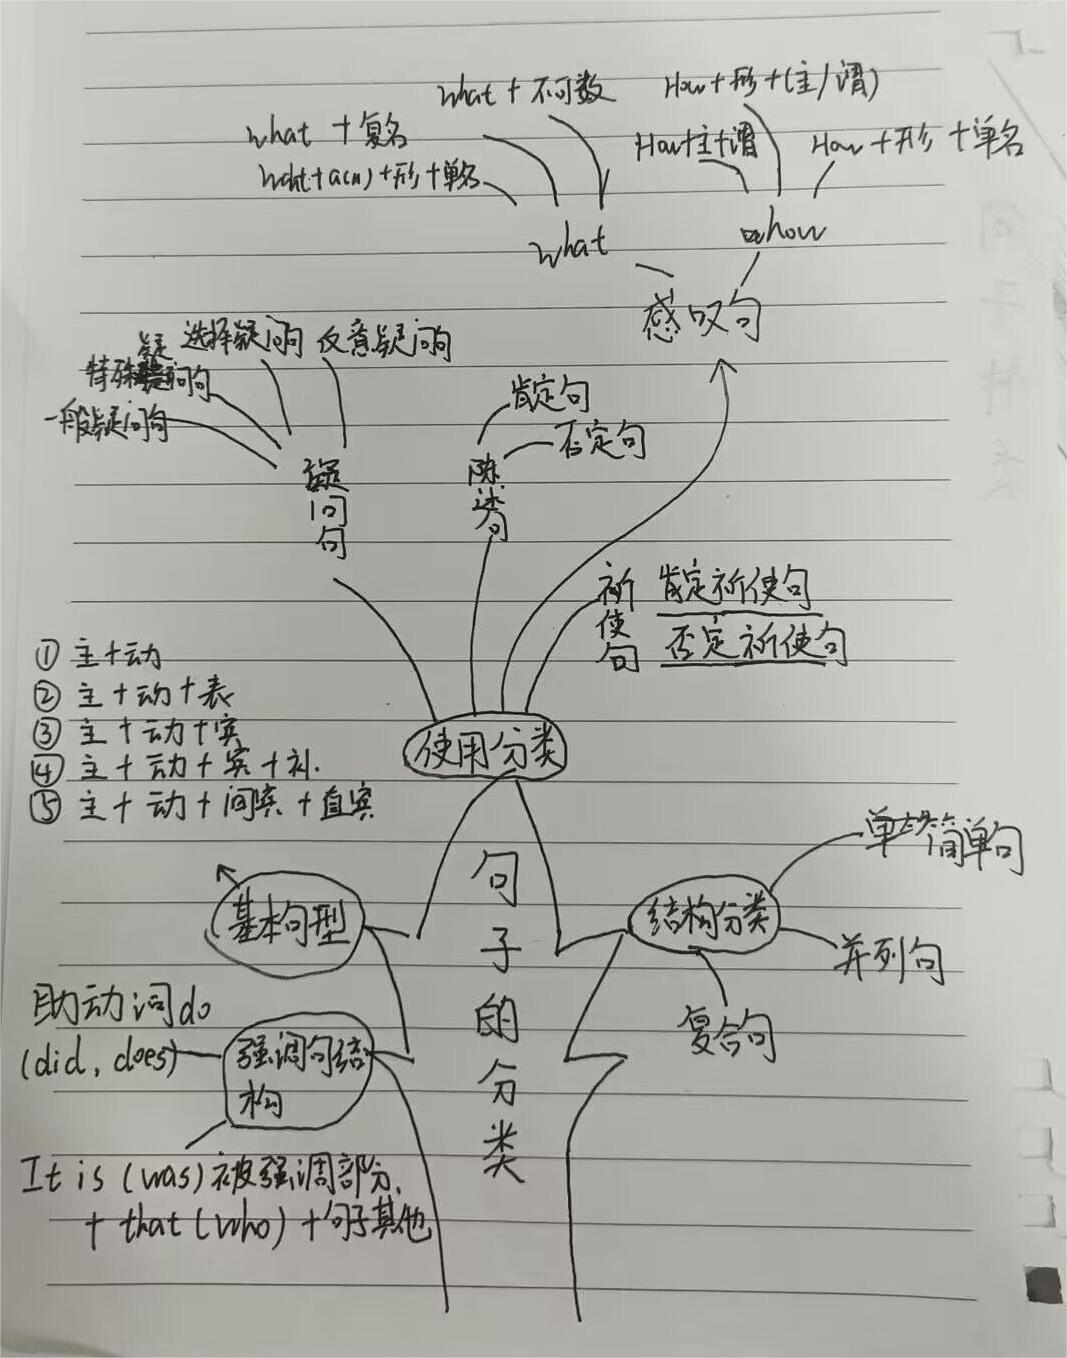 what + 不可数
How+形+(主/谓)
what + 复名
How+主+谓
How + 形 + 单名
what+a(n)+形+单名
what
how
感叹句
选择疑问句
反意疑问句
特殊疑问句
一般疑问句
肯定句
否定句
疑问句
陈述句
祈使句
肯定祈使句
否定祈使句
① 主+动
② 主+动+表
③ 主+动+宾
④ 主+动+宾+补.
⑤ 主+动+间宾+直宾
使用分类
句子的分类
简单句
基本句型
结构分类
并列句
复合句
助动词do
(did, does)
强调句结
构
It is (was) 被强调部分.
+ that (who) + 句子其他